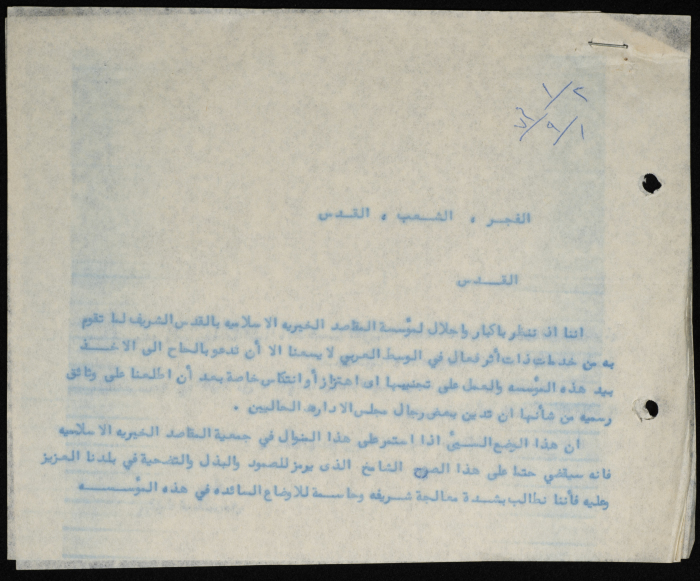 ١/٢
٧٣/٩/١
الفجر ، الشعب ، القدس
القدس
اننا اذ ننظر باكبار واجلال لمؤسسة المقاصد الخيريه الاسلاميه بالقدس الشريف لما تقوم
به من خدمات ذات أثر فعال في الوسط العربي لا يسعنا الا أن ندعو بالحاح الى الاخذ
بيد هذه المؤسسه والعمل على تجنيبها اى اهتزاز أو انتكاس خاصة بعد أن اطلعنا على وثائق
رسميه من شأنها ان تدين بعض رجال مجلس الاداره الحاليين .
ان هذا الوضع السيئ اذا استمر على هذا المنوال في جمعية المقاصد الخيريه الاسلاميه
فانه سيقضي حتما على هذا الصرح الشامخ الذى يرمز للصمود والبذل والتضحية في بلدنا العزيز
وعليه فأننا نطالب بشدة معالجة شريفه وحاسمة للاوضاع السائده في هذه المؤسسه